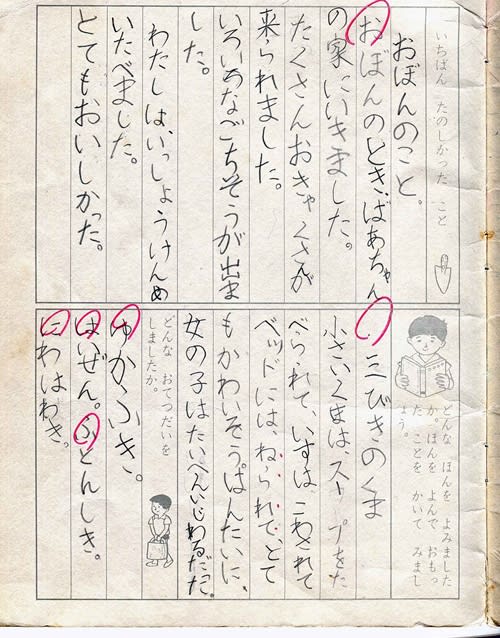 いちばん たのしかった こと
おぼんのこと。
おぼんのとき、ばあちゃん
の家にいきました。
たくさんおきゃくさんが
来られました。
いろいろなごちそうが出ま
した。
わたしは、いっしょうけんめ
いたべました。
とてもおいしかった。
どんな ほんを よみました
か。ほんを よんで おもっ
た ことを かいて みまし
ょう。
三びきのくま
小さいくまは、スープをた
べられて、いすは、こわされて
ベッドには、ねられて、とて
もかわいそう。はんたいに、
女の子はたいへんいじわるだだ。
どんな おてつだいを
しましたか。
ゆかふき。
はいぜん。ふとんしき。
にわはわき。